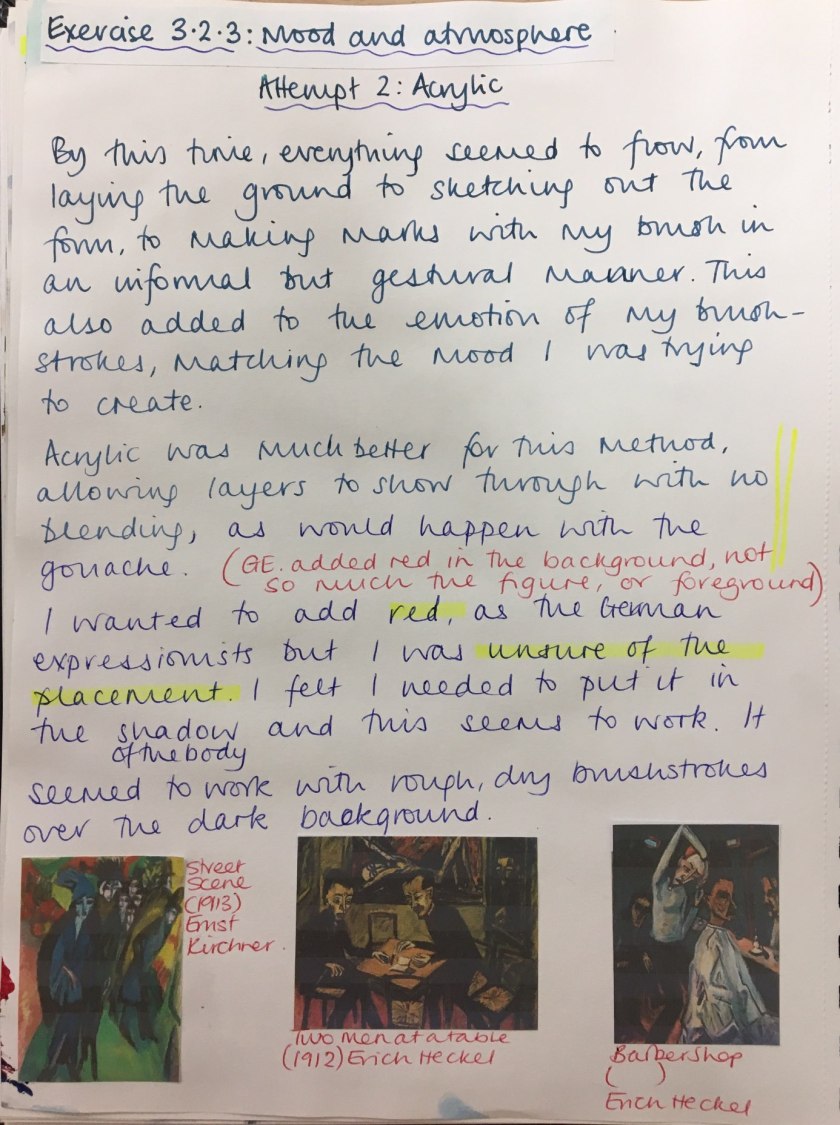 Exercise 3.2.3: Mood and atmosphere
Attempt 2: Acrylic
By this time, everything seemed to flow, from
laying the ground to sketching out the
form, to making marks with my brush in
an informal but gestural manner. This
also added to the emotion of my brush-
strokes, matching the mood I was trying
to create.
Acrylic was much better for this method,
allowing layers to show through with no
blending, as would happen with the
gouache. (GE. added red in the background, not
so much the figure, or foreground)
I wanted to add red, as the German
expressionists but I was unsure of the
placement. I felt I needed to put it in
the shadow and this seems to work. It
of the body
seemed to work with rough, dry brushstrokes
over the dark background.
Street
Scene
(1913)
Ernst
Kirchner.
Two Men at a table
(1912) Erich Heckel
Barbershop
( )
Erich Heckel